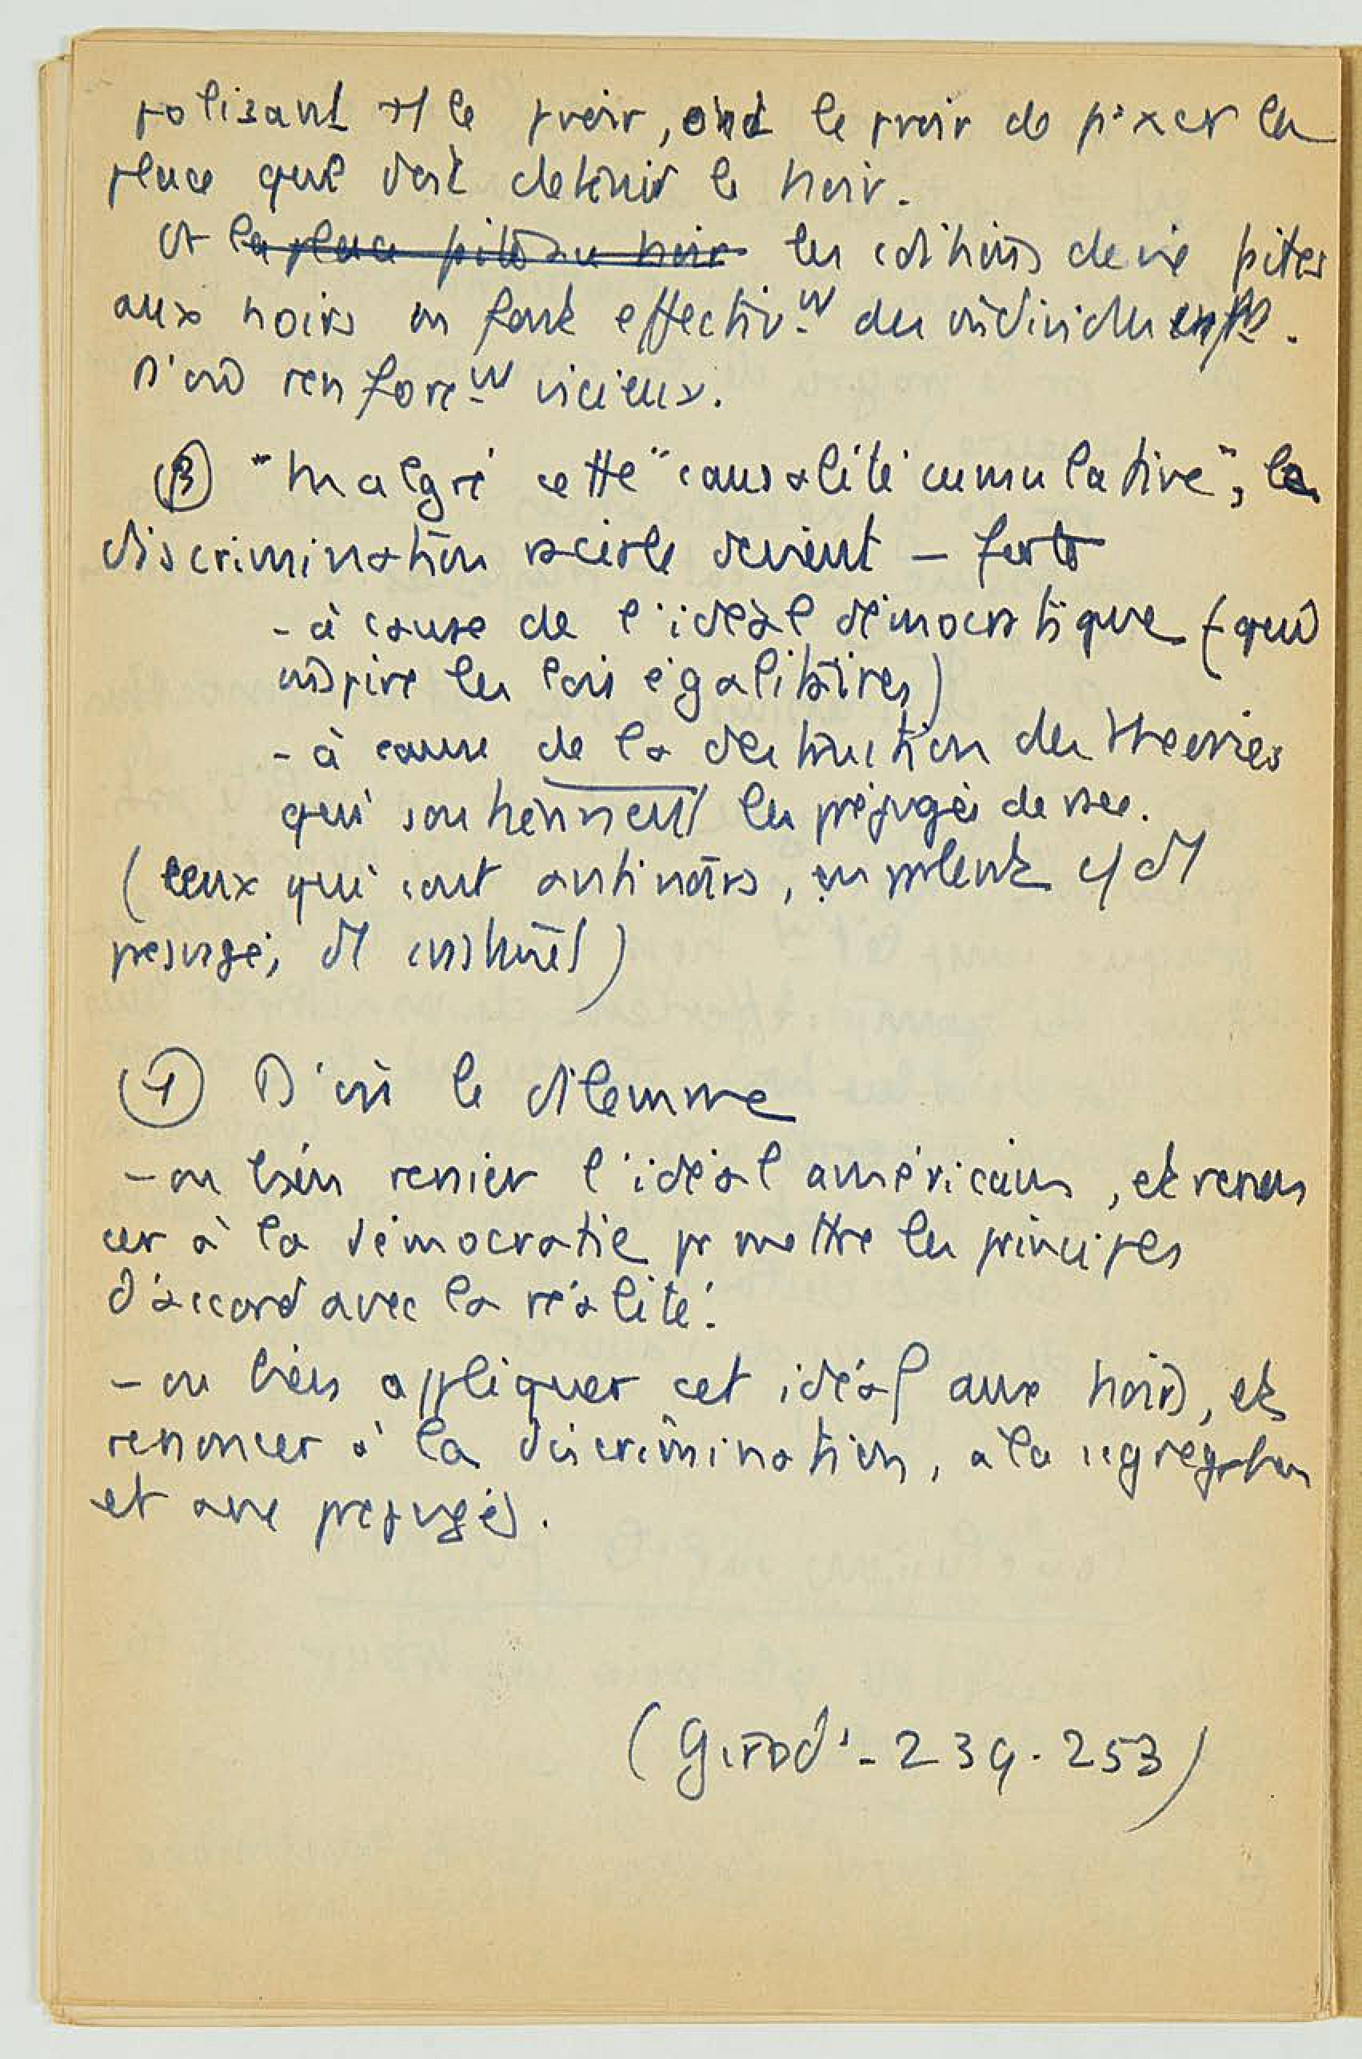 polisant tt le pvoir, ont le pvoir de fixer la
place que doit detenir le noir.
Et la place faite au noir les cditions de vie faites
aux noirs en font effectivt des individus inf.
D'où renforct vicieux.
③ "Malgré cette "causalité cumulative", la
discrimination raciale devient – forte
- à cause de l'idéal démocratique (qui
inspire les lois égalitaires)
- à cause de la destruction des theories
qui soutiennent les préjugés de race.
(ceux qui sont antinoirs, en parlent c/ d'1
préjugé, d'1 instinct)
④ D'où le dilemme
- ou bien renier l'idéal américain, et renon
cer à la démocratie pr mettre les principes
d'accord avec la réalité.
- ou bien appliquer cet idéal aux noirs, et
renoncer à la discrimination, à la ségrégation
et aux préjugés.
(Girod - 239-253)